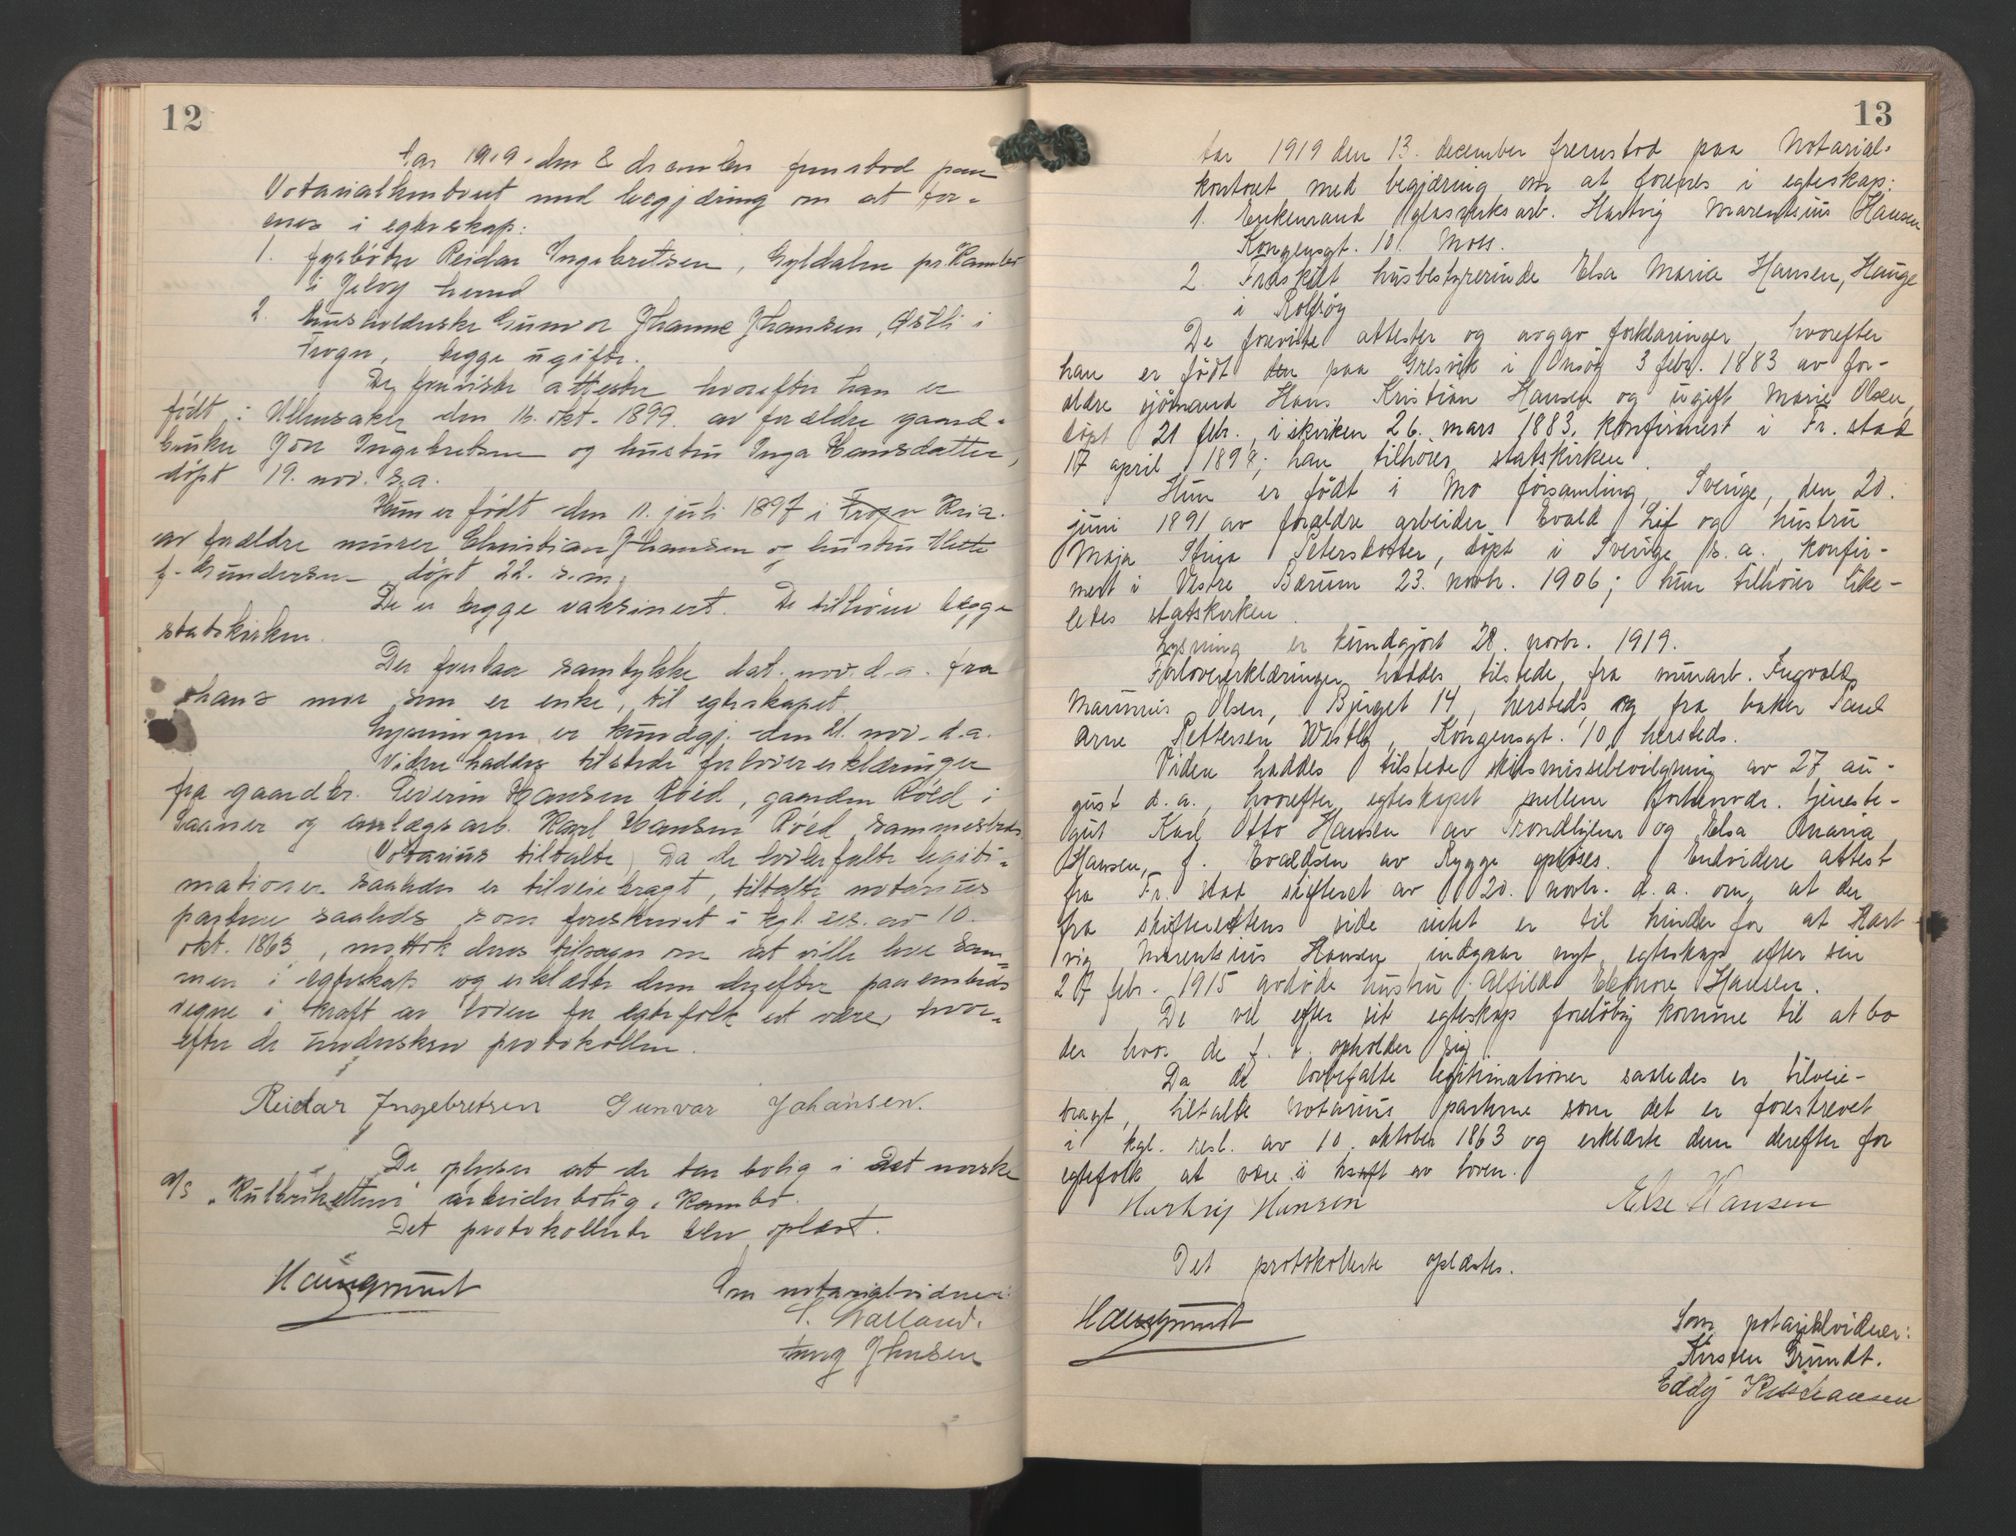 12
Aar 1919 den 8 december fremstod paa
Notarialkontoret med begjæring om at for-
enes i egteskap:
1. fyrbøter Reidar Ingebretsen, Gyldalen pr. Kambo
i Jeløy herred
2. husholderske Gunvor Johanne Johansen, Østli i
Frogn, begge ugifte.
De foreviste attester hvorefter han er
født i Ullensaker den 16. okt. 1899 av forældre gaard-
bruker Jon Ingebretsen og hustru Inga Hansdatter,
døpt 19. nov. s.a.
Hun er født den 11. juli 1897 i Frogn Kria.
av forældre murer Christian Johansen og hustru Mette
f. Gundersen døpt 22. s.m.
De er begge vaksinert. De tilhører begge
statskirken.
Der forelaa samtykke dat. nov. d.a. fra
hans mor som er enke, til egteskapet.
Lysningen er kundgj. den 21. nov. d.a.
Videre haddes tilstede forlovererklæringer
fra gaardbr. Severin Hansen Røed, gaarden Røed i
Saaner og anlægsarb. Karl Hansen Røed sammesteds
(Notarius tiltalte) Da de lovbefalte legiti-
mationer saaledes er tilveiebragt, tiltalte notarius
parterne saaledes som foreskrevet i kgl. res. av 10.
okt. 1863, mottok deres tilsagn om at ville leve sam-
men i egteskap og erklærte dem derefter paa embeds
vegne i kraft av loven for egtefolk at være, hvor-
efter de underskrev protokollen.
Reidar Ingebretsen Gunvor Johansen.
De oplyser at de tar bolig i det norske
A/S "Kulbriketten" arbeiderbolig, Kambo.
Det protokollerte blev oplæst.
Haugrundt
Som notarialvidner:
S. Walland.
Aug Johnsen
13
Aar 1919 den 13. december fremstod paa Notarial-
kontoret med begjæring om at forenes i egteskap:
1. Enkemand glasverksarb. Hartvig Marentsius Hansen
Kongensgt. 10. Moss.
2. Fraskilt husbestyrerinde Elsa Maria Hansen, Hauge
i Rolfsøy
De foreviste attester og avgav forklaringer, hvorefter
han er født den paa Gresvik i Onsøy 3 febr. 1883 av for-
ældre sjømand Hans Kristian Hansen og ugift Marie Olsen,
døpt 21 febr., i kirken 26. mars 1883, konfirmert i Fr. stad
17 april 1898; han tilhører statskirken.
Hun er født i Mo församling, Sverige, den 20.
juni 1891 av forældre arbeider Evald Lif og hustru
Maja Stina Petersdotter, døpt i Sverige s.a., konfir-
mert i Vestre Bærum 23. novbr. 1906; hun tilhører like-
ledes statskirken.
Lysning er kundgjort 28. novbr. 1919.
Forlovererklæringer haddes tilstede fra murarb. Ingvald
Marinius Olsen, Bjerget 14, hersteds og fra baker Paul
Arne Pettersen Westby, Kongensgt. 10, hersteds.
Viden haddes tilstede skilsmissebevilgning av 27 au-
gust d.a., hvorefter egteskapet mellem forhenvær. tjeneste-
gut Karl Otto Hansen av Trondhjem og Elsa Maria
Hansen, f. Evaldsen av Rygge opløses. Endvidere attest
fra Fr. stad skifteret av 20. novbr. d.a. om, at der
fra skifterettens side intet er til hinder for at Hart
vig Marentsius Hansen indgaar nyt egteskap efter sin
27 febr. 1915 avdøde hustru Alfild Eleonore Hansen.
De vil efter sit egteskap foreløbig komme til at bo
der hvor de f. t. opholder sig.
Da de lovbefalte legitimationer saaledes er tilveie-
bragt, tiltalte notarius parterne som det er foreskrevet
i kgl. resl. av 10. oktober 1863 og erklærte dem derefter for
egtefolk at være i kraft av loven.
Hartvig Hansen Else Hansen
Det protokollerte oplæstes.
Haugrundt
Som notarialvidner:
Kirsten Grundt.
Eddy Kristiansen